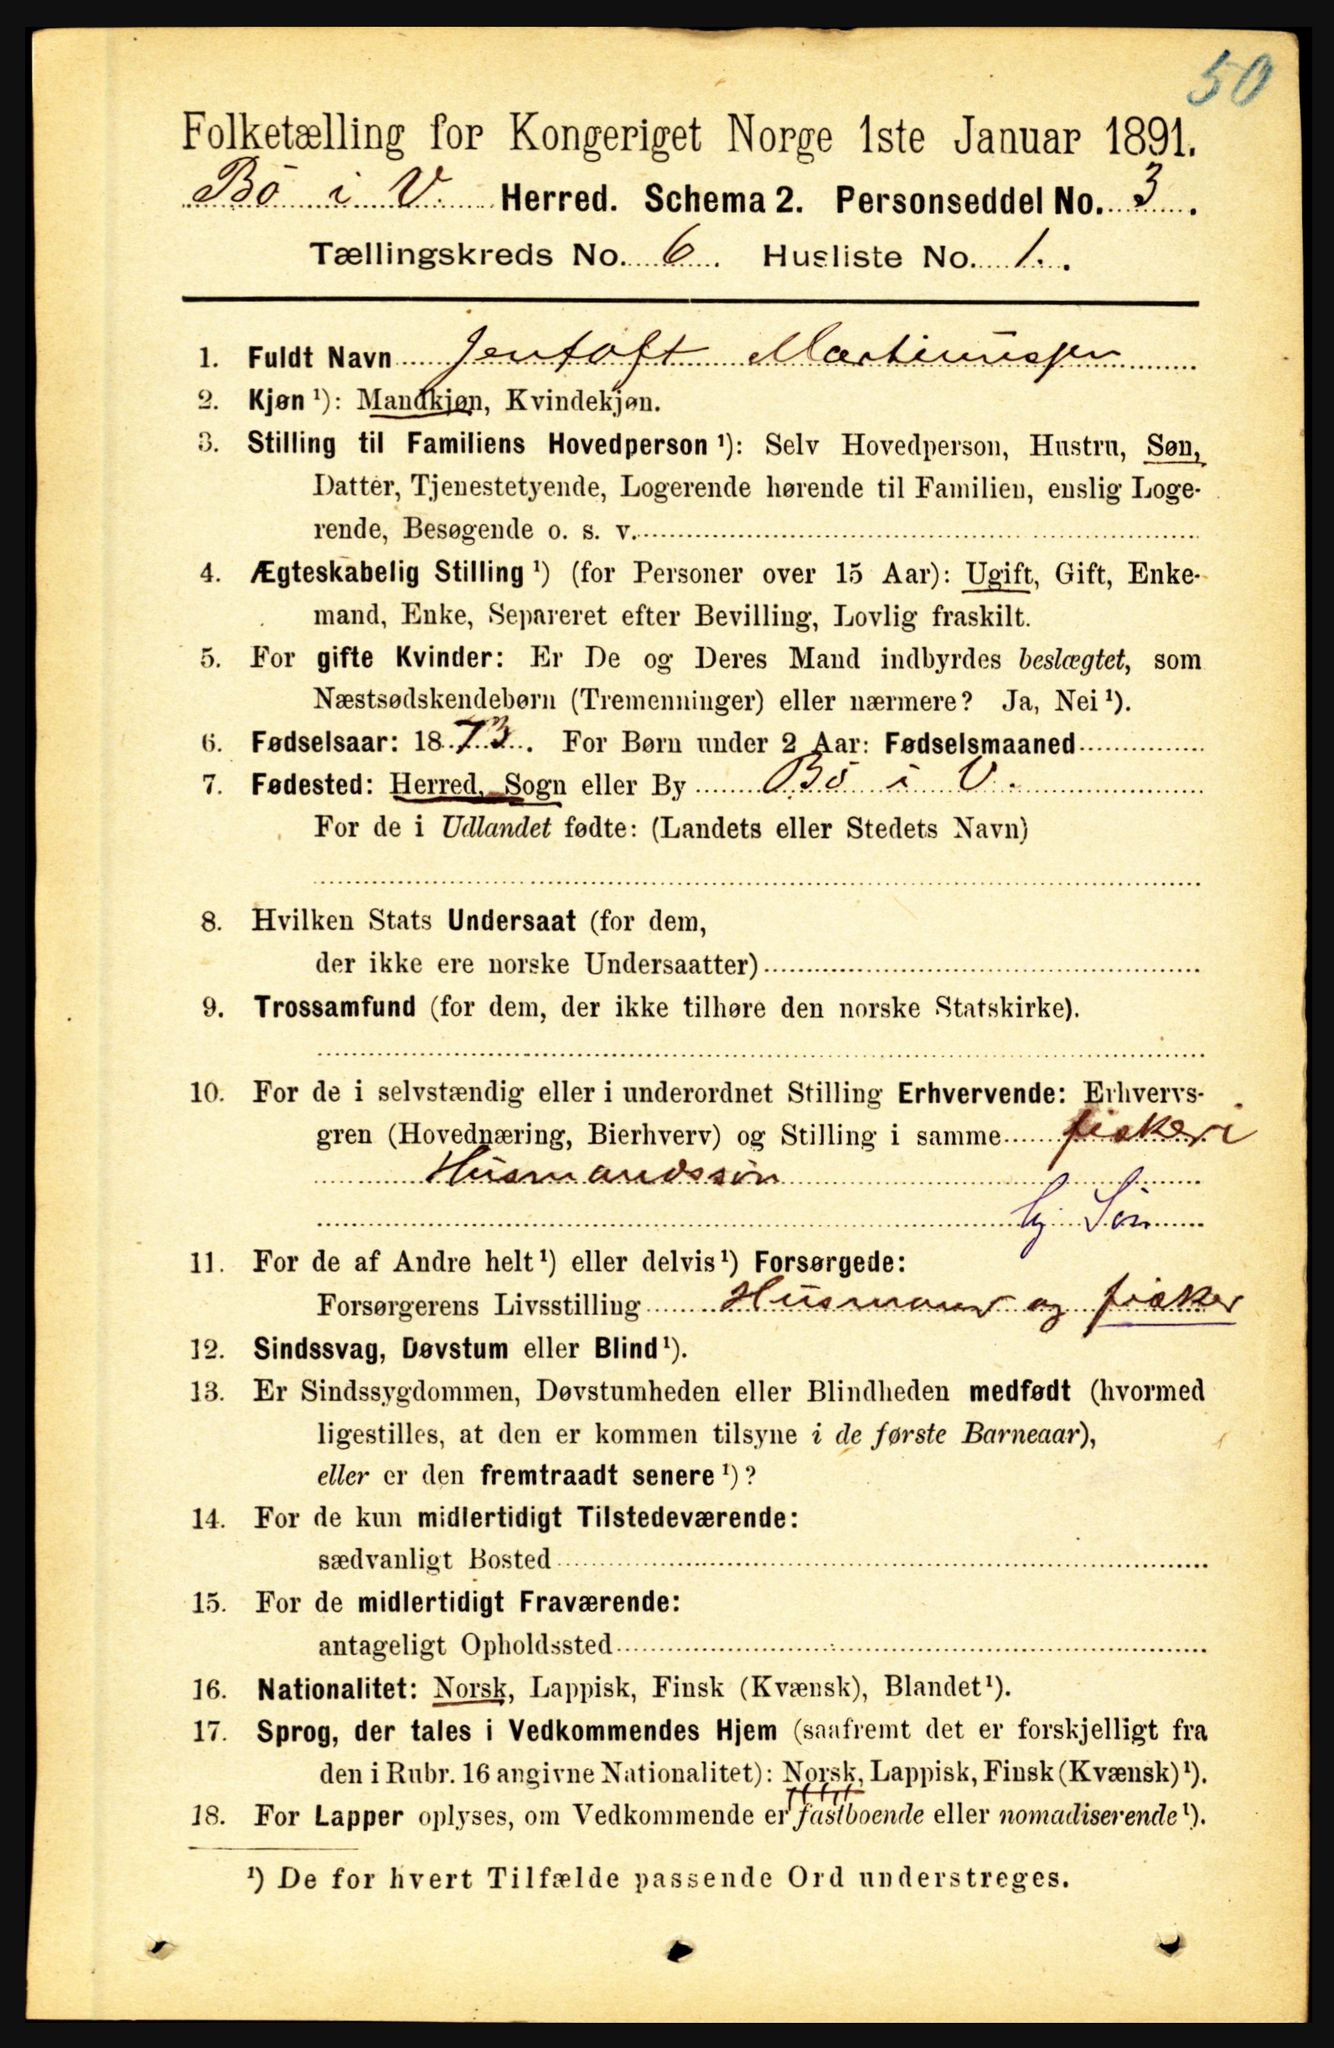 50
Folketælling for Kongeriget Norge 1ste Januar 1891.
Bö i V. Herred. Schema 2. Personseddel No. 3.
Tællingskreds No. 6. Husliste No. 1.
1. Fuldt Navn Jentoft Martinussen
2. Kjøn ¹): Mandkjøn, Kvindekjøn.
3. Stilling til Familiens Hovedperson ¹): Selv Hovedperson, Hustru, Søn,
Datter, Tjenestetyende, Logerende hørende til Familien, enslig Loge-
rende, Besøgende o. s. v.
4. Ægteskabelig Stilling ¹) (for Personer over 15 Aar): Ugift, Gift, Enke-
mand, Enke, Separeret efter Bevilling, Lovlig fraskilt.
5. For gifte Kvinder: Er De og Deres Mand indbyrdes beslægtet, som
Næstsødskendebørn (Tremenninger) eller nærmere? Ja, Nei ¹).
6. Fødselsaar: 1873. For Børn under 2 Aar: Fødselsmaaned
7. Fødested: Herred, Sogn eller By Bö i V.
For de i Udlandet fødte: (Landets eller Stedets Navn)
8. Hvilken Stats Undersaat (for dem,
der ikke ere norske Undersaatter)
9. Trossamfund (for dem, der ikke tilhøre den norske Statskirke).
10. For de i selvstændig eller i underordnet Stilling Erhvervende: Erhvervs-
gren (Hovednæring, Bierhverv) og Stilling i samme fiskeri
Husmandssön
hj. Sön
11. For de af Andre helt ¹) eller delvis ¹) Forsørgede:
Forsørgerens Livsstilling Husmand og fisker
12. Sindssvag, Døvstum eller Blind ¹).
13. Er Sindssygdommen, Døvstumheden eller Blindheden medfødt (hvormed
ligestilles, at den er kommen tilsyne i de første Barneaar),
eller er den fremtraadt senere ¹)?
14. For de kun midlertidigt Tilstedeværende:
sædvanligt Bosted
15. For de midlertidigt Fraværende:
antageligt Opholdssted
16. Nationalitet: Norsk, Lappisk, Finsk (Kvænsk), Blandet ¹).
17. Sprog, der tales i Vedkommendes Hjem (saafremt det er forskjelligt fra
den i Rubr. 16 angivne Nationalitet): Norsk, Lappisk, Finsk (Kvænsk) ¹).
18. For Lapper oplyses, om Vedkommende er fastboende eller nomadiserende ¹).
¹) De for hvert Tilfælde passende Ord understreges.